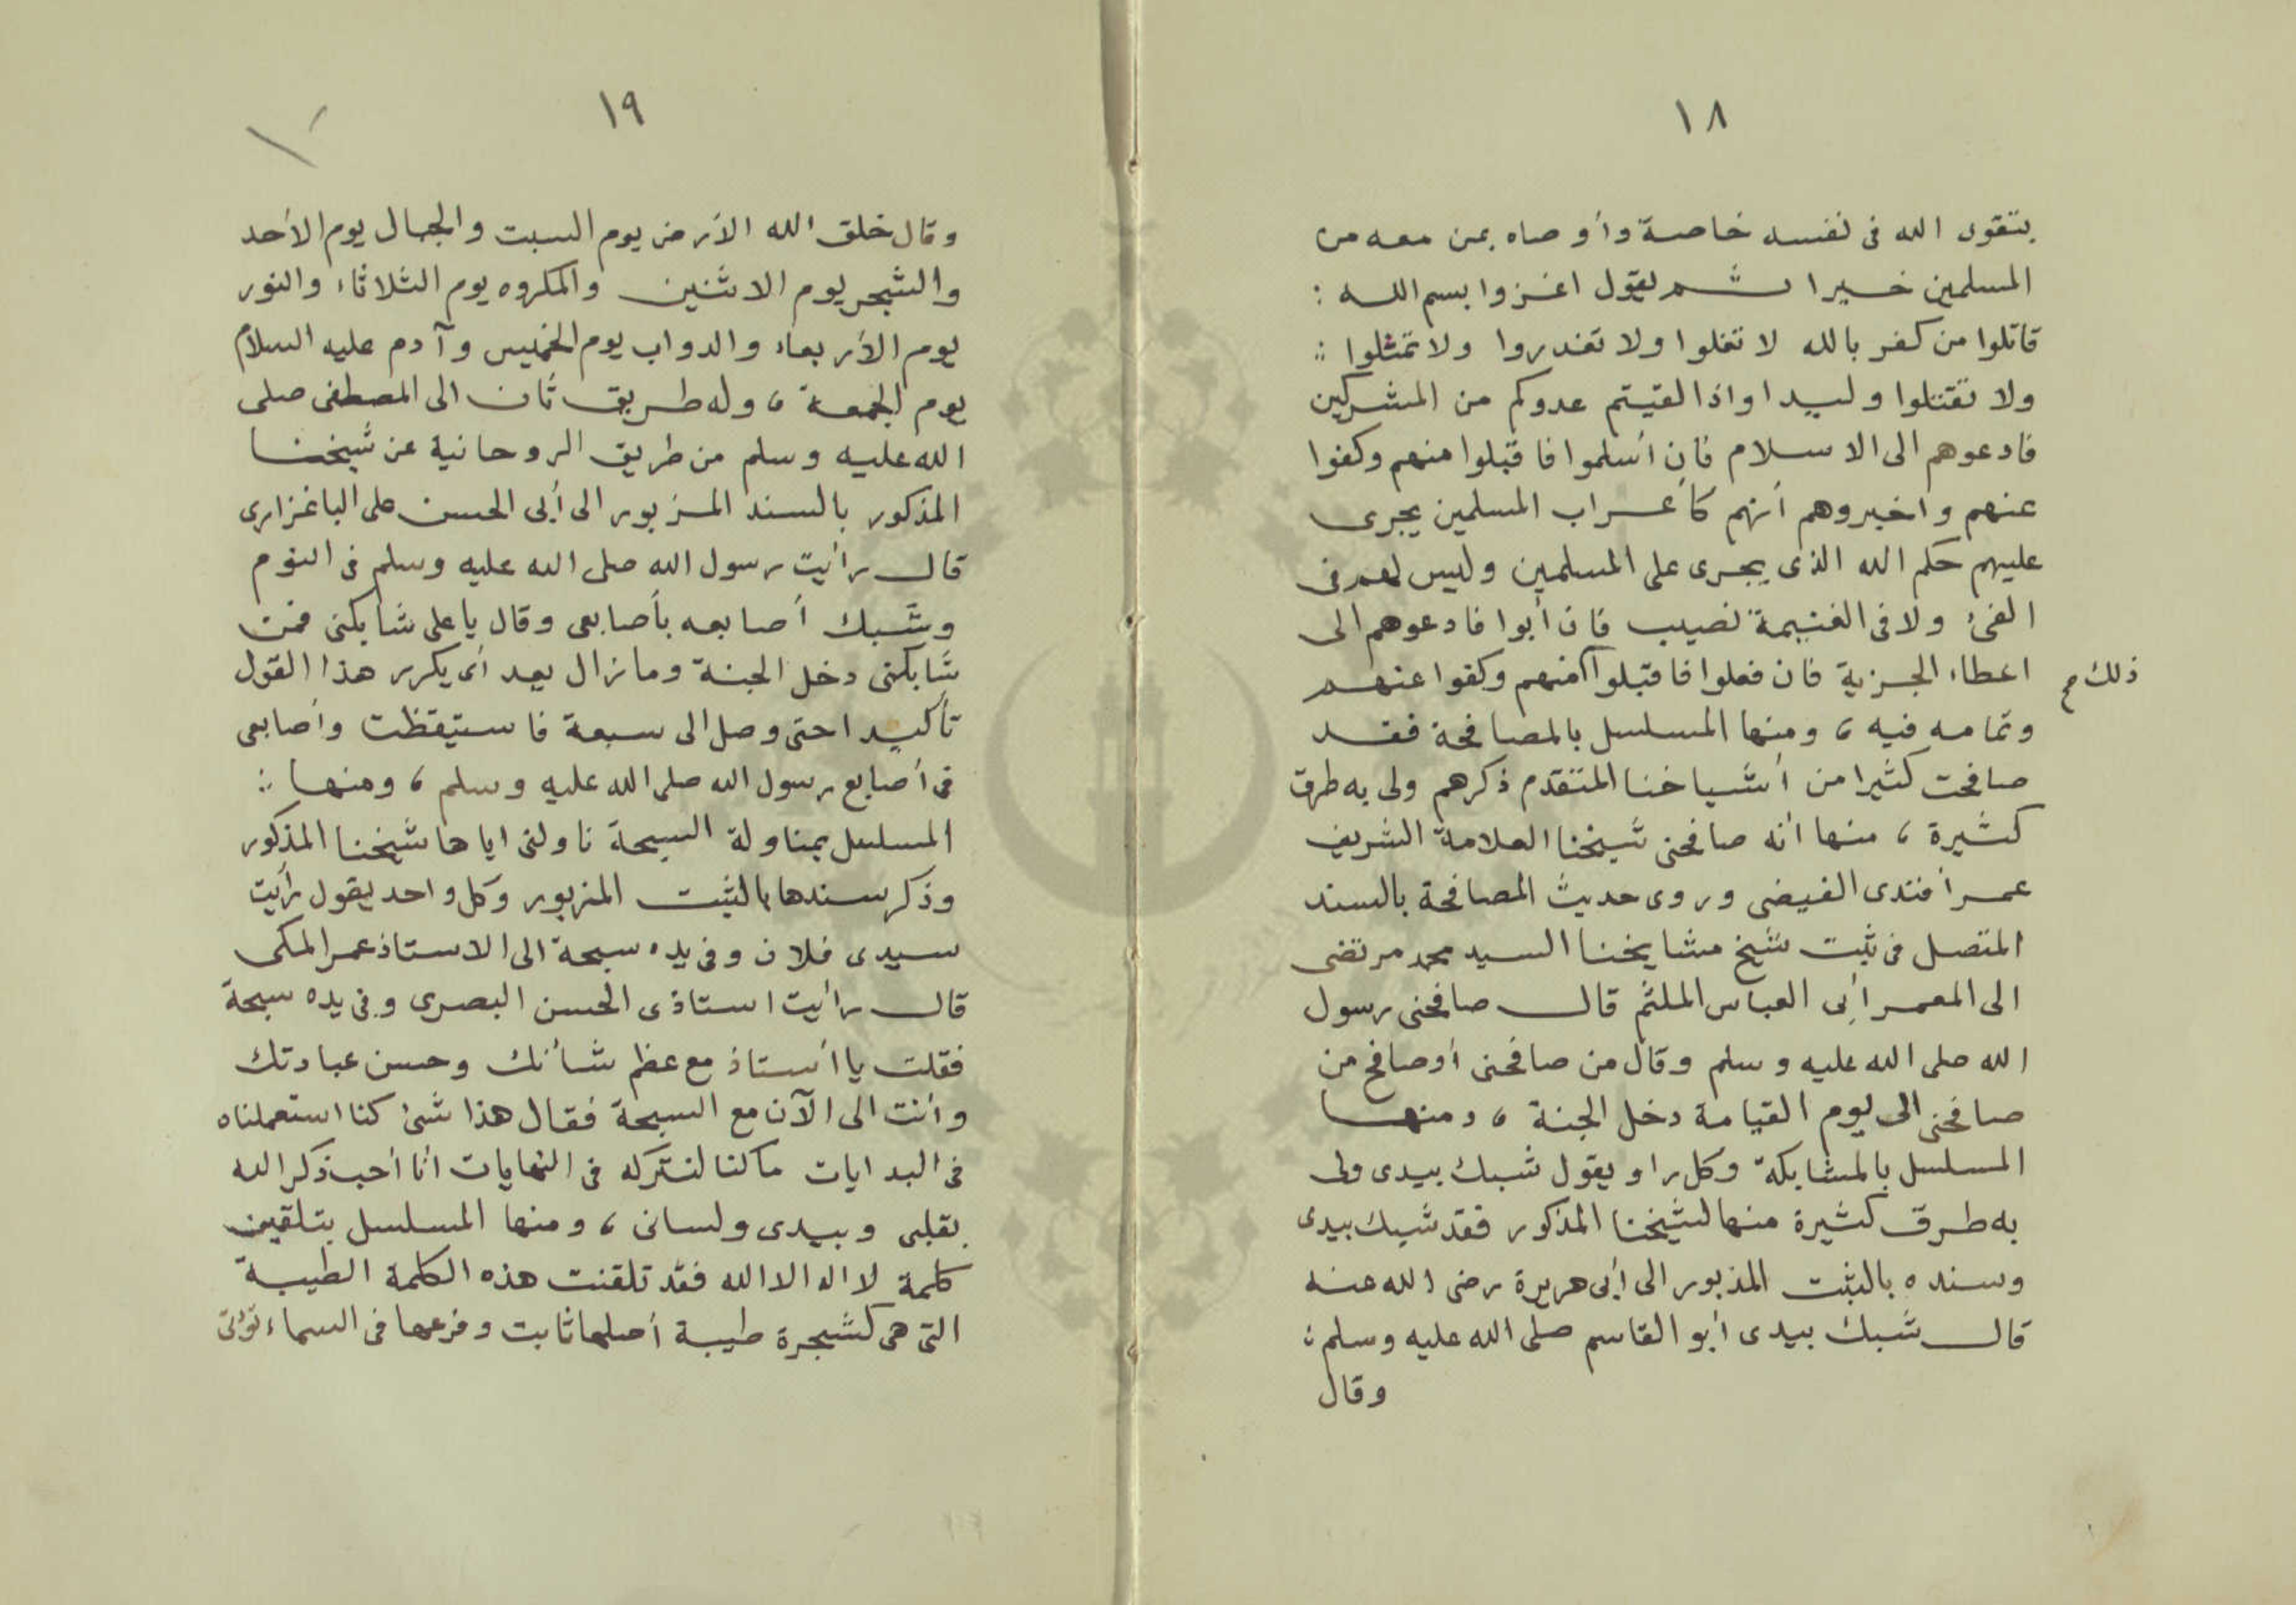 ١٨
بتقوى الله فى نفسه خاصة وأوصاه بمن معه من
المسلمين خيرا ثم يقول اغزوا بسم الله :
قاتلوا من كفر بالله لا تغلوا ولا تغدروا ولا تمثلوا :
ولا تقتلوا وليدا واذا لقيتم عدوكم من المشركين
فادعوهم الى الاسلام فان أسلموا فاقبلوا منهم وكفوا
عنهم واخبروهم أنهم كأعراب المسلمين يجرى
عليهم حكم الله الذى يجرى على المسلمين وليس لهم فى
الفئ ولا فى الغنيمة نصيب فان أبوا فادعوهم الى
اعطاء الجزية فان فعلوا فاقبلوا منهم وكفوا عنهم
ذلك
وتمامه فيه ، ومنها المسلسل بالمصافحة فقد
صافحت كثيرا من أشياخنا المتقدم ذكرهم ولى به طرق
كثيرة ، منها أنه صافحنى شيخنا العلامة الشريف
عمر أفندى الفيضى وروى حديث المصافحة بالسند
المتصل فى ثبت شيخ مشايخنا السيد محمد مرتضى
الى المعمر أبى العباس الملثم قال صافحنى رسول
الله صلى الله عليه وسلم وقال من صافحنى أو صافح من
صافحنى الى يوم القيامة دخل الجنة ، ومنها
المسلسل بالمشابكة وكل راو يقول شبك بيدى ولى
به طرق كثيرة منها لشيخنا المذكور فقد شبك بيدى
وسنده بالثبت المذبور الى أبى هريرة رضى الله عنه
قال شبك بيدى أبو القاسم صلى الله عليه وسلم :
وقال
١٩
وقال خلق الله الأرض يوم السبت والجبال يوم الأحد
والشجر يوم الاثنين والمكروه يوم الثلاثاء والنور
يوم الأربعاء والدواب يوم الخميس وآدم عليه السلام
يوم الجمعة ، وله طريق ثان الى المصطفى صلى
الله عليه وسلم من طريق الروحانية عن شيخنا
المذكور بالسند المزبور الى أبى الحسن على الباغزارى
قال رأيت رسول الله صلى الله عليه وسلم فى النوم
وشبك أصابعه بأصابعى وقال يا على شابكنى فمن
شابكنى دخل الجنة وما زال يعد أى يكرر هذا القول
تأكيدا حتى وصل الى سبعة فاستيقظت وأصابعى
فى أصابع رسول الله صلى الله عليه وسلم ، ومنها :
المسلسل بمناولة السبحة ناولنى اياها شيخنا المذكور
وذكر سندها بالثبت المزبور وكل واحد يقول رأيت
سيدى فلان وفى يده سبحة الى الاستاذ عمر المكى
قال رأيت استاذى الحسن البصرى وفى يده سبحة
فقلت يا أستاذ مع عظم شأنك وحسن عبادتك
وأنت الى الآن مع السبحة فقال هذا شئ كنا استعملناه
فى البدايات ما كنا لنتركه فى النهايات أنا أحب ذكر الله
بقلبى وبيدى ولسانى ، ومنها المسلسل بتلقين
كلمة لا اله الا الله فقد تلقنت هذه الكلمة الطيبة
التى هى كشجرة طيبة أصلها ثابت وفرعها فى السماء تؤتى